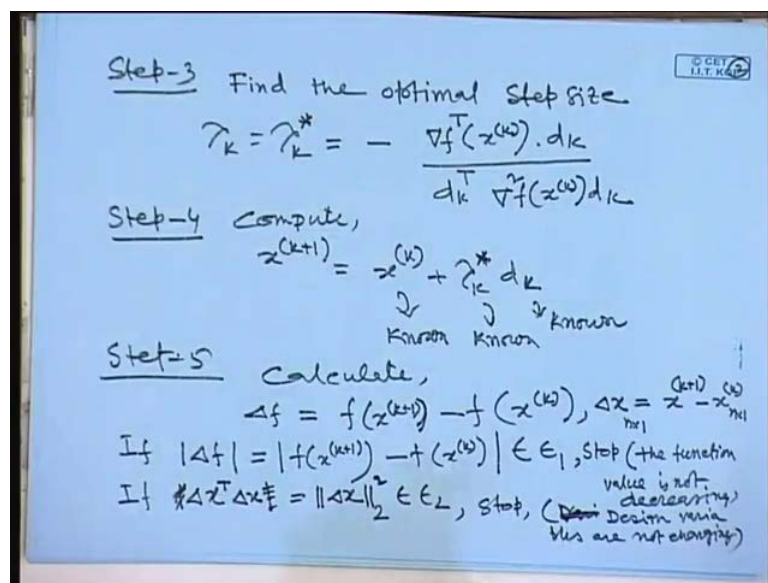 © CET
I.I.T. KGP
2
Step-3 Find the optimal step size
λ_K = λ_K^* = - ∇f^T(x^(k)) . d_K / d_K^T ∇^2 f(x^(k)) d_K
Step-4 Compute,
x^(k+1) = x^(k) + λ_K^* d_K
Known Known Known
Stet-5 Calculate,
Δf = f(x^(k+1)) - f(x^(k)), Δx_{n×1} = x^(k+1) - x^(k)_{n×1}
If |Δf| = |f(x^(k+1)) - f(x^(k))| ∈ ∈_1, Stop (the function
value is not
decreasing)
If Δx^T Δx = ||Δx||_2^2 ∈ ∈_2, Stop, (Design varia
bles are not changing)